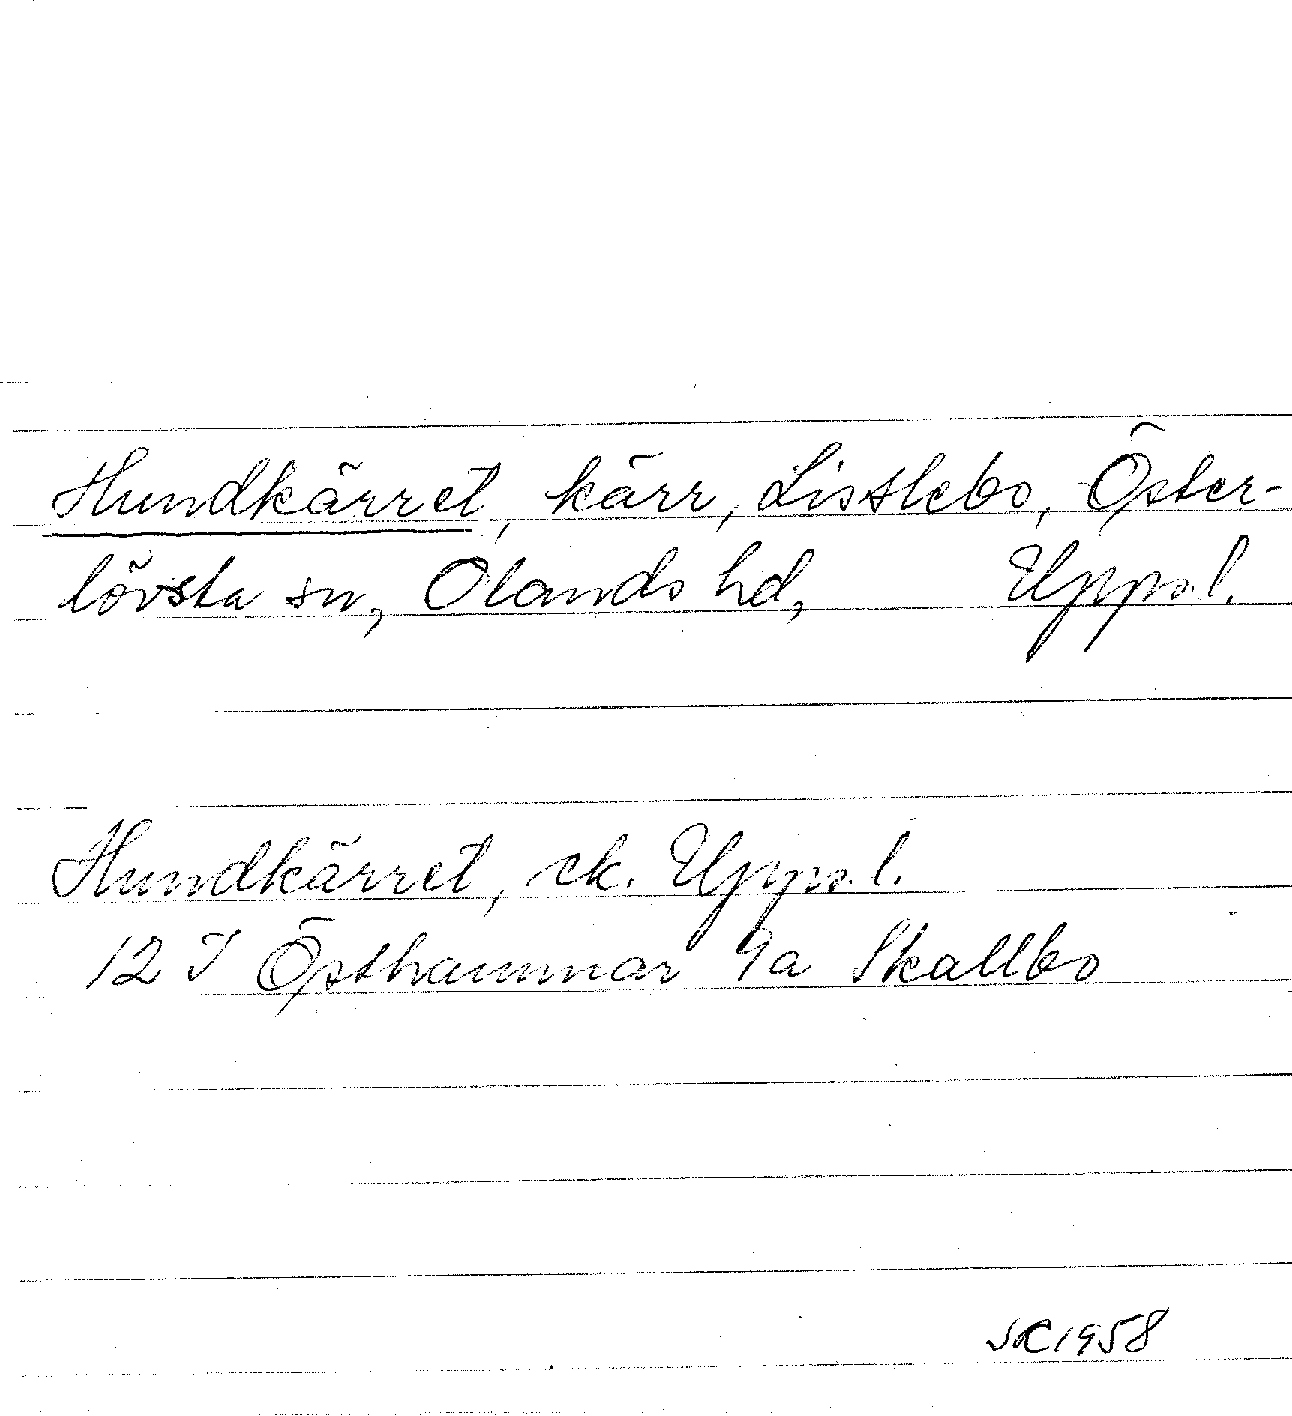 Hundkärret, kärr, Listlebo, Öster-
lövsta sn, Olands hd, Uppl.
Hundkärret, ek. Uppl.
12 I Östhammar 9a Skallbo
1958